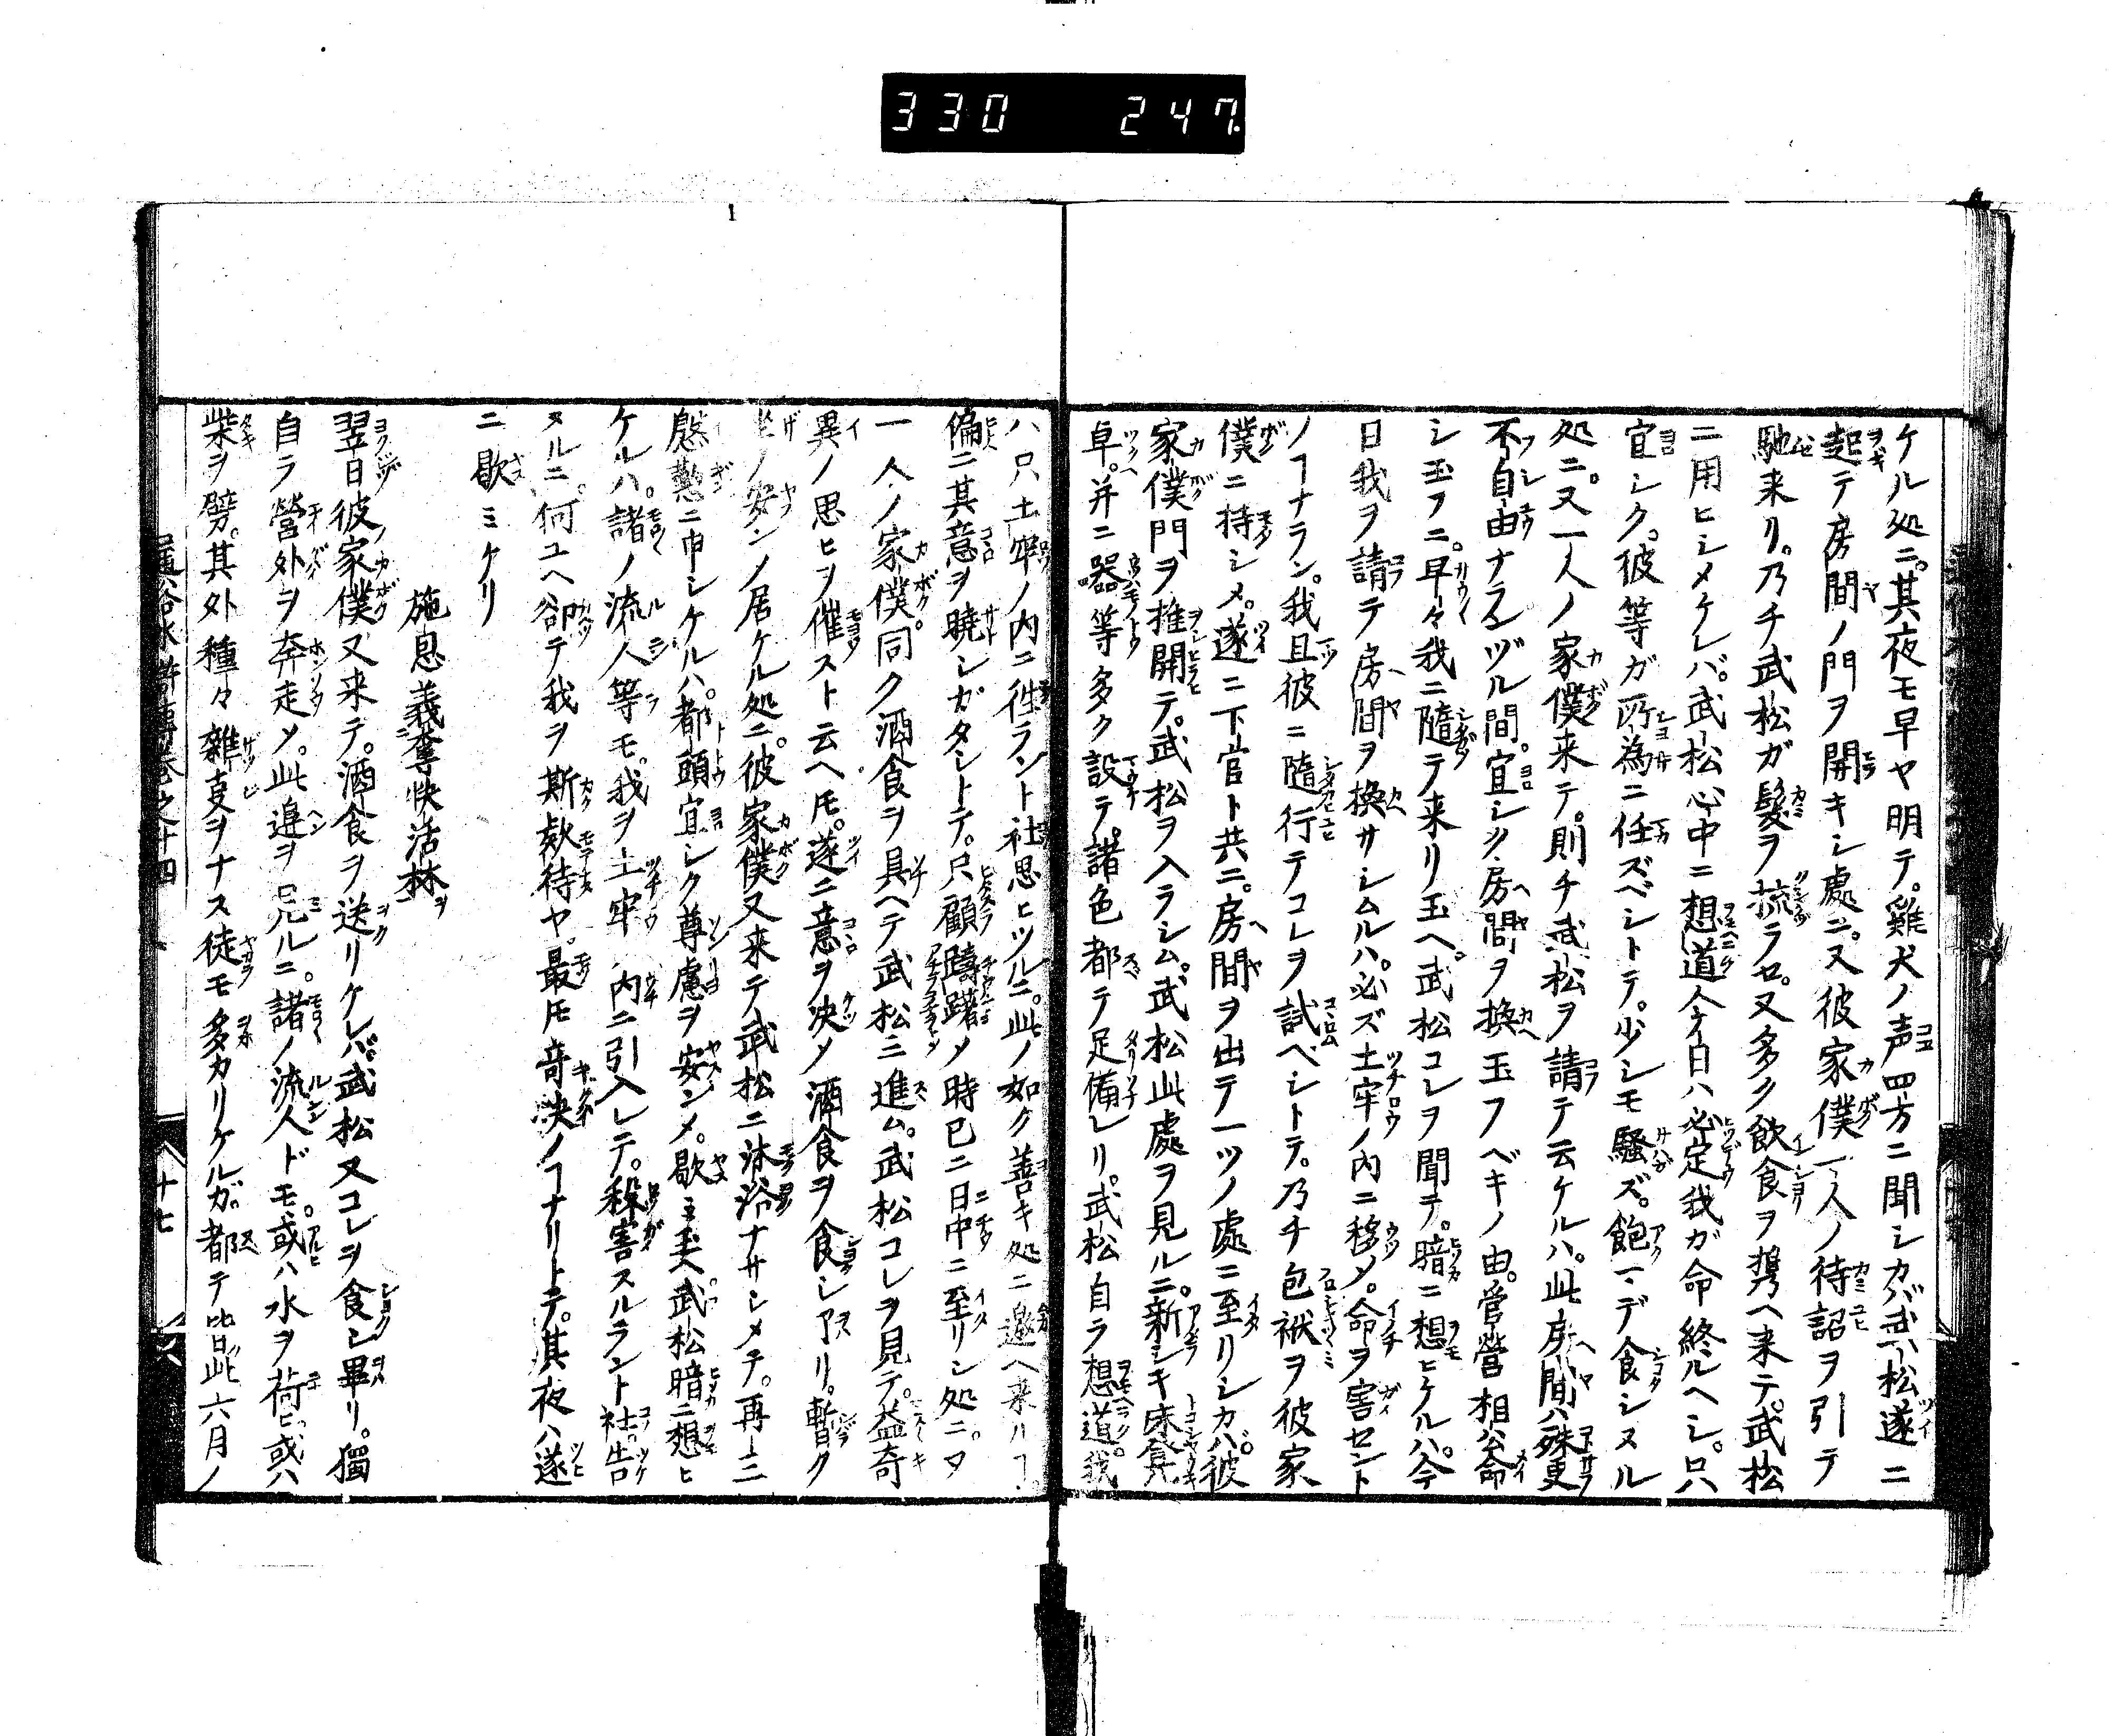 330 247
ケル処ニ。其夜モ早ヤ明テ。雞犬ノ声四方ニ聞シカバ武松遂ニ
起テ房間ノ門ヲ開キシ處ニ。又彼家僕一人ノ待詔ヲ引テ
馳来リ。乃チ武松ガ髮ヲ梳ラセ。又多ク飲食ヲ携ヘ来テ。武松
ニ用ヒシメケレバ。武松心中ニ想道今日ハ必定我ガ命終ルヘシ。只
宜シク。彼等ガ所為ニ任ズベシトテ。少シモ騒ズ。飽マデ食シヌル
処ニ。又一人ノ家僕来テ。則チ武松ヲ請テ云ケルハ。此房間ハ殊更
不自由ナランヅル間。宜シク房間ヲ換玉フベキノ由。管營相公命
シ玉フニ。早々我ニ隨テ来リ玉ヘ。武松コレヲ聞テ。暗ニ想ヒケルハ。今
日我ヲ請テ房間ヲ換サシムルハ。必ズ土牢ノ内ニ移メ。命ヲ害セント
ノヿナラン。我且彼ニ隨行テコレヲ試ベシトテ。乃チ包袱ヲ彼家
僕ニ持シメ。遂ニ下官ト共ニ。房間ヲ出テ一ツノ處ニ至リシカバ。彼
家僕門ヲ推開テ。武松ヲ入ラシム。武松此處ヲ見ルニ。新シキ床食
卓。并ニ器等多ク設テ。諸色都テ足備レリ。武松自ラ想道。我
ハ只土牢ノ内ニ徃ラント社思ヒツルニ。此ノ如ク善キ処ニ邀ヘ来ルヿ。
偏ニ其意ヲ曉シガタシトテ。只顧躊躇メ時已ニ日中ニ至リシ処ニ。又
一人ノ家僕。同ク酒食ヲ具ヘテ武松ニ進ム。武松コレヲ見テ。益奇
異ノ思ヒヲ催スト云ヘ𪜈。遂ニ意ヲ决メ酒食ヲ食シ了リ。暫ク
坐ノ安ンノ居ケル処ニ。彼家僕又来テ武松ニ沐浴ナサシメテ。再三
慇懃ニ申シケルハ。都頭宜シク尊慮ヲ安ンメ。歇ミ玉ヘ武松暗ニ想ヒ
ケルハ。諸ノ流人等モ。我ヲ土牢ノ内ニ引入レテ。殺害スルラント社告
ヌルニ。何ユヘ却テ我ヲ斯欵待ヤ。最𪜈竒决ノヿナリトテ。其夜ハ遂
ニ歇ミケリ
施恩義奪快活林ヲ
翌日彼家僕又来テ。酒食ヲ送リケレバ。武松又コレヲ食シ畢リ。獨
自ラ營外ヲ奔走メ。此邉ヲ見ルニ。諸ノ流人ドモ。或ハ水ヲ荷ヒ。或ハ
柴ヲ劈。其外種々雜㕝ヲナス徒モ多カリケルガ。都テ皆此六月ノ
通俗水滸傳卷之十四
十七